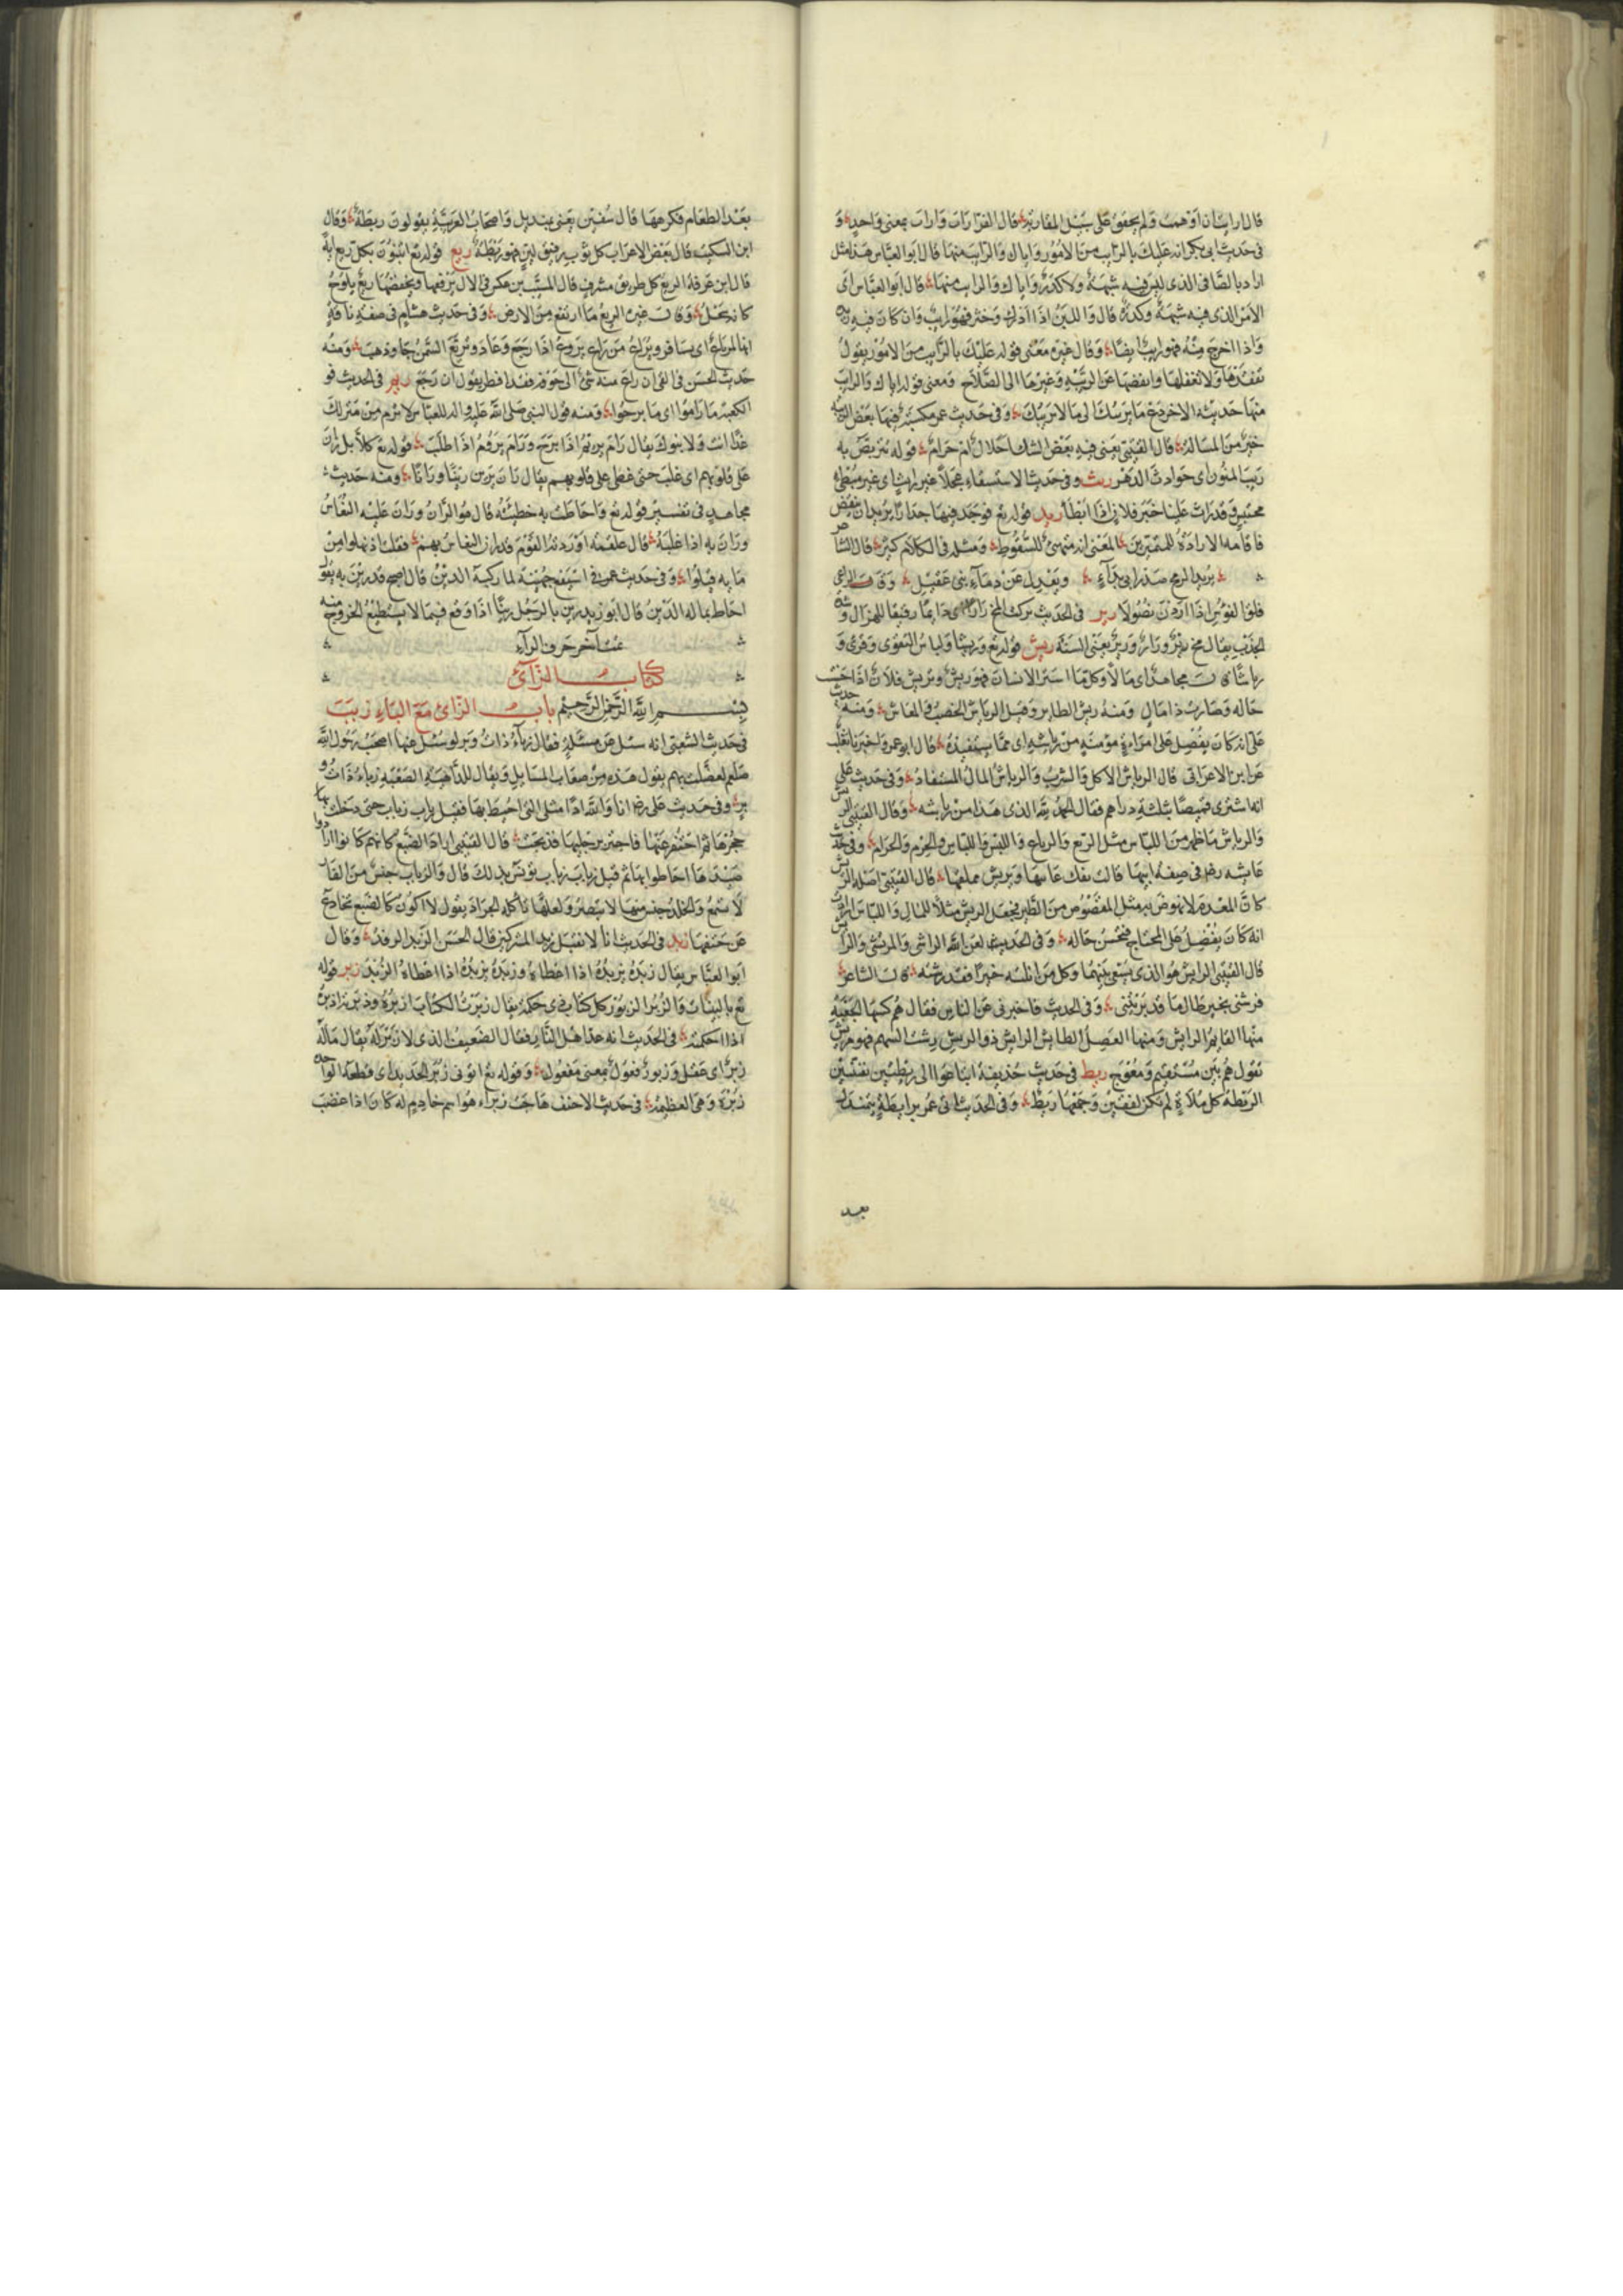 قال اراب اذا اوهمت ولم يحقق على سبيل المقاربة قال الفرا راب واراب بمعنى واحد و
فى حديث ابى بكر انه عليك بالرايب من الامور واياك والرايب منها قال ابو العباس هذا مثل
اراد بالصافى الذى ليس فيه شبهة ولا كدر واياك والرايب منها قال ابو العباس اى
الامر الذى فيه شبهة وكدر قال واللبن اذا ادرك وخثر فهو رايب وان كان فيه زبده
واذا اخرج منه فهو رايب ايضا وقال غيره معنى قوله عليك بالرايب من الامور يقول
تفقدها ولا تغفلها وانفضها عن الريبة وغيرها الى الصلاح ومعنى قوله اياك والرايب
منها حديثه الاخر دع ما يريبك الى ما لا يريبك وفى حديث عمر مكسبة فيها بعض الريبة
خير من المسالة قال القتيبى يعنى فيه بعض الشك احلال ام حرام قوله نتربص به
ريب المنون اى حوادث الدهر ريث وفى حديث الاستسقاء عجلا غير رايث اى غير مبطئ
محتبس وقد راث علينا خبر فلان اذا ابطأ ريد قوله تع فوجد فيها جدارا يريد ان ينقض
فاقامه الارادة للمميزين المعنى انه متهيئ للسقوط ومثله فى الكلام كثير قال الشاعر
يريد الرمح صدر ابى براء ويعدل عن دماء بنى عقيل وقال الراعى
قلق الفؤس اذا اردن نصولا رير فى الحديث تركت المخ رارا اى ذائبا رقيقا للهزال وشدة
الجذب يقال مخ رير ورار ورير يعنى السنة ريش قوله تع وريشا ولباس التقوى وقرئ و
رياشا قال مجاهد اى مالا وكل ما استر الانسان فهو ريش وتريش فلان اذا حسنت
حاله وصارت ذا مال ومنه ريش الطاير وقيل الرياش الخصب والمعاش ومنه حديث
على انه كان يفضل على امراة مؤمنة من رياشه اى مما يستفيده قال ابو عمر واخبرنا ثعلب
عن ابن الاعرابى قال الرياش الاكل والشرب والرياش المال المستفاد وفى حديث على
انه اشترى قميصا بثلثة دراهم فقال الحمد لله الذى هذا من رياشه وقال القتيبى الريش
والرياش ما ظهر من اللباس مثل الربع والرباع واللبس واللباس والحرم والحرام وفى حديث
عايشه رضها فى صفة ابيها قالت يفك عانيها ويريش مملقها قال القتيبى اصله الريش
كان المعدم لا نهوض به مثل المقصوص من الطير فجعل الريش مثلا للمال واللباس ارادت
انه كان يفضل على المحتاج فتحسن حاله وفى الحديث لعن الله الراشى والمرتشى والرايش
قال القتيبى الرايش هو الذى يسعى بينهما وكل من انلته خيرا فقد رشته قال الشاعر
فرشنى بخير طال ما قد بريتنى وفى الحديث فاخبرنى عن الناس فقال هم كسهام الجعبة
منها القايم الرايش ومنها العصل الطايش الرايش ذو الريش رشت السهم فهو مريش
يقول هم بين مستقيم ومعوج ريط فى حديث حذيفة ابتاعوا لى ريطتين نقيتين
الريطة كل ملاءة لم تكن لفقين وجمعها ريط وفى الحديث اتى عمر برايطة يتمندل
بعد
بعد الطعام فكرهها قال سفين يعنى بمنديل واصحاب العربية يقولون ريطة وقال
ابن السكيت قال بعض الاعراب كل ثوب رقيق لين فهو ريطة ريع قوله تع اتبنون بكل ريع اية
قال ابن عرفة الريع كل طريق مشرف قال المسيب بن علس فى الال يرفعها ويخفضها ريع يلوح
كانه سحل وقال غيره الريع ما ارتفع من الارض وفى حديث هشام فى صفة ناقة
انها لمرياع اى يسافر ويراع من راع يروع اذا رجع وعاد وتريع السمن جا وذهب ومنه
حديث الحسن فى القى ان راع منه شئ الى جوفه فقد افطر يقول ان رجع ريم فى الحديث فو
الكعبة ما راموا اى ما برحوا ومنه قول النبى صلى الله عليه واله للعباس لا ترم من منزلك
غدا انت ولا بنوك يقال رام يريم اذا برح ورام يروم اذا طلب قوله تع كلا بل ران
على قلوبهم اى غلب حتى غطى على قلوبهم يقال ران يرين رينا ورانا ومنه حديث
مجاهد فى تفسير قوله تع واحاطت به خطيئته قال هو الران وران عليه النعاس
وران به اذا غلبه قال علقمة اوردته القوم قد ران النعاس بهم فقلت اذ نهلوا من
مابه قيلوا وفى حديث عمر فى اسيفع جهينة لما ركبه الدين قال اصبح قد رين به يقول
احاط بماله الدين قال ابو زيد رين بالرجل رينا اذا وقع فيما لا يستطيع الخروج منه
تمت اخر حرف الراء
كتاب الزاى
بسم الله الرحمن الرحيم باب الزاى مع الباء زبب
فى حديث الشعبى انه سئل عن مسئلة فقال زباء ذات وبر لو سئل عنها اصحب رسول الله
صلعم لعضلت بهم يقول هذه من صعاب المسايل ويقال للداهية الصعبة زباء ذات و
بر وفى حديث على رض انا والله اذا مثل التى احيط بها فقيل زباب زباب حتى دخلت
حجرها ثم احتفر عنها فاجتر برجليها فذبحت قال القتيبى اراد الضبع كانهم كانوا اذا ارادوا
صيدها احاطوا بها ثم قيل زباب زباب يؤنس بذلك قال والزباب جنس من الفار
لا تسمع والخلد جنس منها لا تبصر ولعلها تاكله الجراد يقول لا اكون كالضبع تخادع
عن حتفها زبد فى الحديث انا لا نقبل زبد المشركين قال الحسن الزبد الرفد وقال
ابو العباس يقال زبده يزبده اذا اعطاه وزبده يزبده اذا اعطاه الزبد زبر قوله
تع بالبينات والزبر الزبور كل كتاب ذى حكمة يقال زبرت الكتاب ازبره وذبرته اذبره
اذا احكمته فى الحديث انه عد اهل النار فقال الضعيف الذى لا زبر له يقال ماله
زبر اى عقل وزبور فعول بمعنى مفعول وقوله تع اتونى زبر الحديد اى قطعه الواحدة
زبرة وهى العظيمة فى حديث الاحنف هاجت زبراء هو اسم خادم له كان اذا غضب